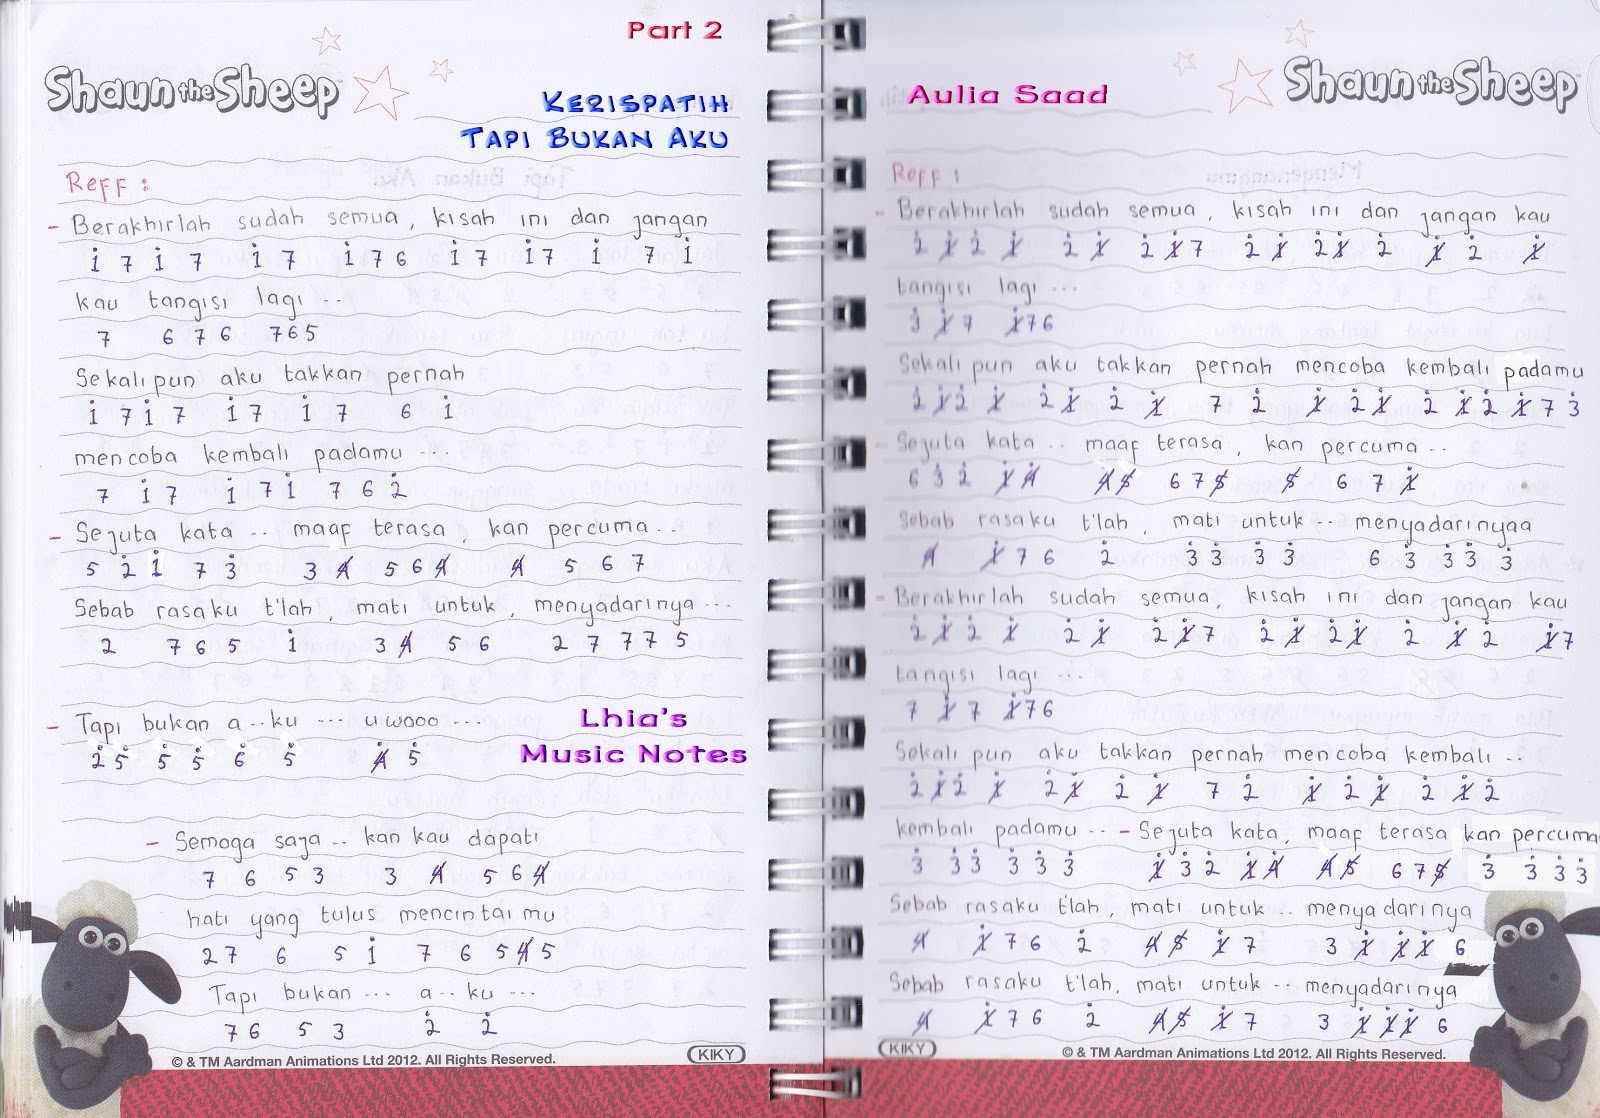 Part 2
Shaun the Sheep
KERISPATIH
TAPI BUKAN AKU
Reff :
- Berakhirlah sudah semua, kisah ini dan jangan
i̇ 7 i̇ 7 i̇ 7 i̇ 7 6 i̇ 7 i̇ 7 i̇ 7 i̇
kau tangisi lagi ..
7 6 7 6 7 6 5
Sekali pun aku takkan pernah
i̇ 7 i̇ 7 i̇ 7 i̇ 7 6 i̇
mencoba kembali padamu ...
7 i̇ 7 i̇ 7 i̇ 7 6 2̇
- Sejuta kata .. maaf terasa, kan percuma ..
5 2̇ i̇ 7 3̇ 3 4̸ 5 6 4̸ 4̸ 5 6 7
Sebab rasaku t'lah, mati untuk, menyadarinya ...
2 7 6 5 i̇ 3 4̸ 5 6 2 7 7 7 5
- Tapi bukan a..ku ... uwooo ...
2̇ 5̇ 5̇ 5̇ 6̇ 5̇ 4̸̇ 5̇
Lhia's
Music Notes
- Semoga saja .. kan kau dapati
7 6 5 3 3 4̸ 5 6 4̸
hati yang tulus mencintaimu
2 7 6 5 i̇ 7 6 5 4̸ 5
Tapi bukan ... a..ku ...
7 6 5 3 2̇ 2̇
© & TM Aardman Animations Ltd 2012. All Rights Reserved.
KIKY
Aulia Saad
Shaun the Sheep
Reff :
- Berakhirlah sudah semua, kisah ini dan jangan kau
2̇ 1̸̇ 2̇ 1̸̇ 2̇ 1̸̇ 2̇ 1̸̇ 7 2̇ 1̸̇ 2̇ 1̸̇ 2̇ 1̸̇ 2̇ 1̸̇
tangisi lagi ...
3̇ 1̸̇ 7 1̸̇ 7 6
Sekali pun aku takkan pernah mencoba kembali padamu
2̇ 1̸̇ 2̇ 1̸̇ 2̇ 1̸̇ 2̇ 1̸̇ 7 2̇ 1̸̇ 2̇ 1̸̇ 2̇ 1̸̇ 2̇ 1̸̇ 7 3̇
- Sejuta kata .. maaf terasa, kan percuma ..
6 3̇ 2̇ 1̸̇ 4̸̇ 4̸ 5̸ 6 7 5̸ 5̸ 6 7 1̸̇
Sebab rasaku t'lah, mati untuk .. menyadarinyaa
4̸ 1̸̇ 7 6 2̇ 3̇ 3̇ 3̇ 3̇ 6 3̇ 3̇ 3̇ 3̇
- Berakhirlah sudah semua, kisah ini dan jangan kau
2̇ 1̸̇ 2̇ 1̸̇ 2̇ 1̸̇ 2̇ 1̸̇ 7 2̇ 1̸̇ 2̇ 1̸̇ 2̇ 1̸̇ 2̇ 1̸̇ 7
tangisi lagi ...
7 1̸̇ 7 1̸̇ 7 6
Sekali pun aku takkan pernah mencoba kembali ..
2̇ 1̸̇ 2̇ 1̸̇ 2̇ 1̸̇ 2̇ 1̸̇ 7 2̇ 1̸̇ 2̇ 1̸̇ 2̇ 1̸̇ 2̇
kembali padamu .. - Sejuta kata, maaf terasa kan percuma
3̇ 3̇ 3̇ 3̇ 3̇ 3̇ 1̸̇ 3̇ 2̇ 1̸̇ 4̸̇ 4̸ 5̸ 6 7 5̸ 3̇ 3̇ 3̇ 3̇
Sebab rasaku t'lah, mati untuk .. menyadarinya
4̸ 1̸̇ 7 6 2̇ 4̸ 5̸ 1̸̇ 7 3 1̸̇ 1̸̇ 1̸̇ 6
Sebab rasaku t'lah, mati untuk .. menyadarinya
4̸ 1̸̇ 7 6 2̇ 4̸ 5̸ 1̸̇ 7 3 1̸̇ 1̸̇ 1̸̇ 6
KIKY
© & TM Aardman Animations Ltd 2012. All Rights Reserved.